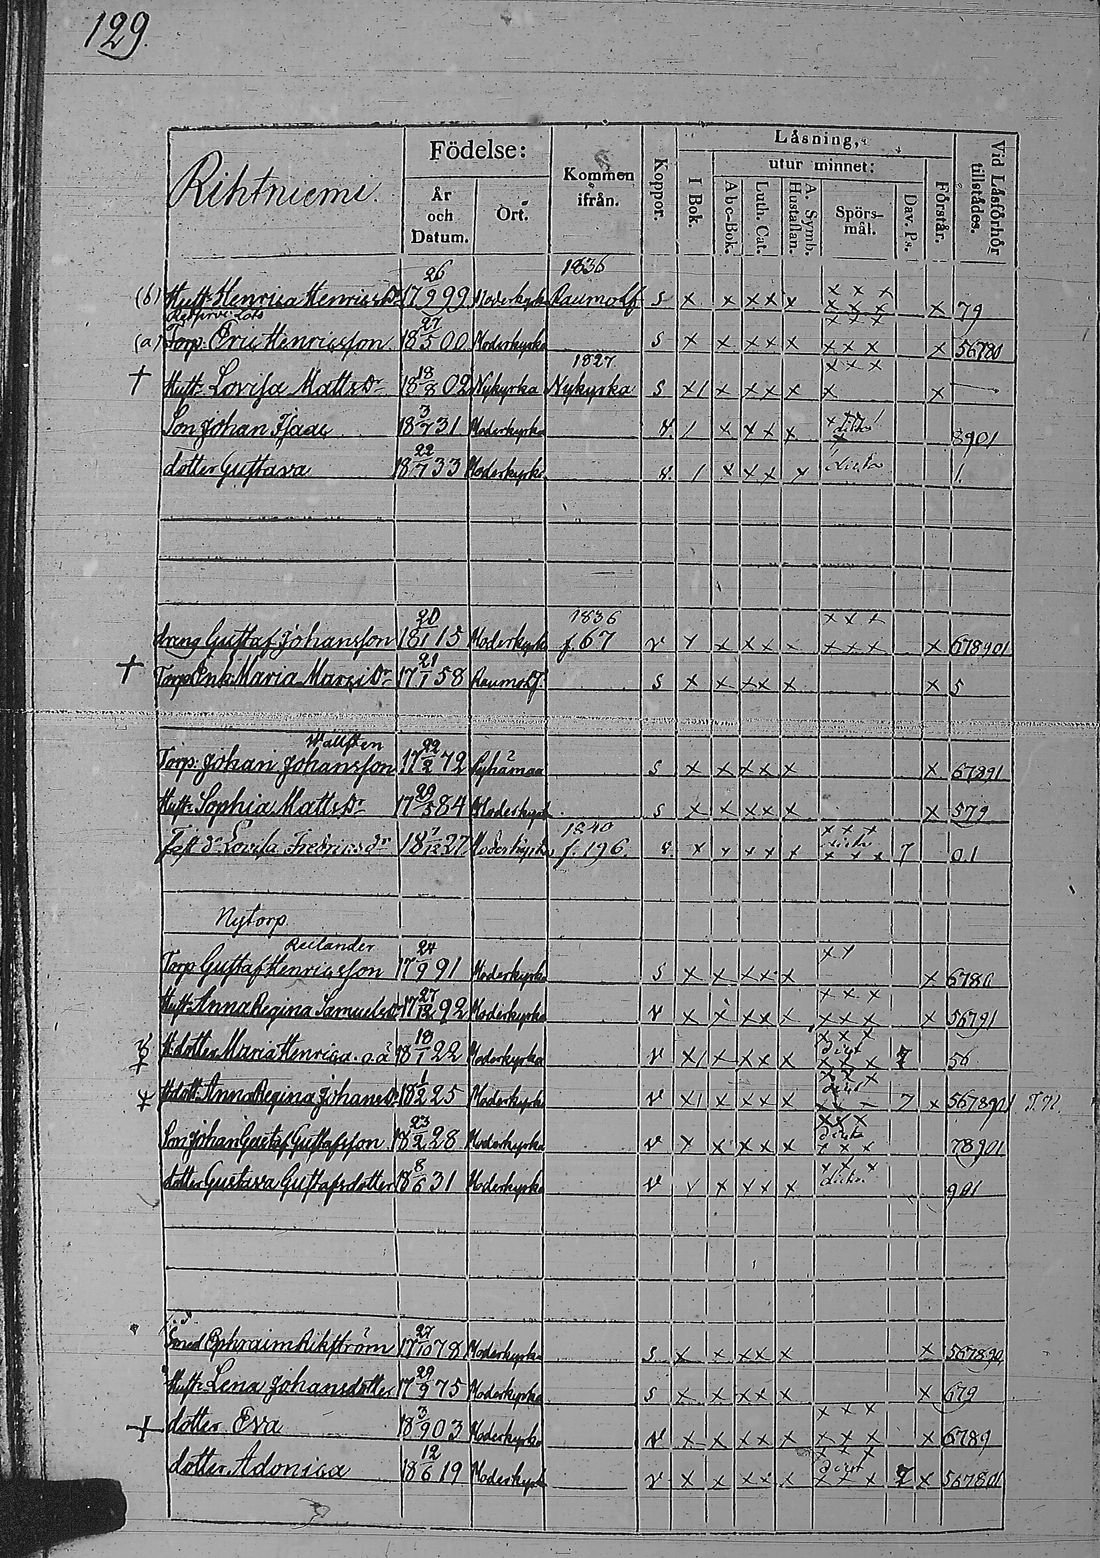 129.
Rihtniemi.
Födelse:
År och Datum.
Ort.
Kommen ifrån.
Koppor.
Läsning,
I Bok.
utur minnet:
Abc-Bok.
Luth. Cat.
A. Symb. Hustaflan.
Spörs-mål.
Dav. Ps.
Förstår.
Vid Läsförhör tillstädes.
1836
(b) Hustr. Henrica Henricsdr 17 26/9 99 Moderkyrka Raumo Lf s x x x x x x x x x x x x 79
(a) Torp. Eric Henricsson 18 27/5 00 Moderkyrka s x x x x x x x x x x x x 56780
1827
† Hustr. Lovisa Mattsdr 18 18/8 02 Nykyrka Nykyrka s x 1 x x x x x x x x x
Son Johan Isaac 18 3/7 31 Moderkyrka v. 1 x x x x 8901
dotter Gustava 18 22/7 33 Moderkyrka v. 1 x x x x dicta 1.
1836
dreng Gustaf Johansson 18 20/1 15 Moderkyrka f. 67 v x x x x x x x x x x x x 678901
† Torp. Enk. Maria Marcidr 17 21/1 58 Raumo Lf s x x x x x x 5
Wallsten
Torp. Johan Johansson 17 22/2 72 Pyhämaa s x x x x x x 67891
Hustr. Sophia Mattsdr 17 29/5 84 Moderkyrk s x x x x x x 579
1840
Lovisa Fredricsdr 18 7/12 27 Moderkyrk f. 196. v. x x x x x x x x dicta x x x 7 01
Nytorp.
Reilander
Torp. Gustaf Henricsson 17 24/9 91 Moderkyrka s x x x x x x x x 6780
Hustr. Anna Regina Samuelsdr 17 27/12 92 Moderkyrka v x x x x x x x x x x x x 56791
dotter Maria Henrica 18 18/1 22 Moderkyrka v x 1 x x x x x x x dict x x x 7 56
dott. Anna Regina Johansdr 18 1/2 25 Moderkyrka v x 1 x x x x x x x 7 x 5678901
Son Johan Gustaf Gustafsson 18 23/2 28 Moderkyrka v x x x x x x x x dicta x x x 78901
dotter Gustava Gustafsdotter 18 8/6 31 Moderkyrka v x x x x x x x x dicta 901
Smed Ephraim Rikström 17 27/10 78 Moderkyrka s x x x x x x 567890
Hustr. Lena Johansdotter 17 29/9 75 Moderkyrka s x x x x x x 679
† dotter Eva 18 3/9 03 Moderkyrka v x x x x x x x x x x x x 6789
dotter Adonica 18 12/6 19 Moderkyrk v x x x x x x x x dict x x x 7 x 567801